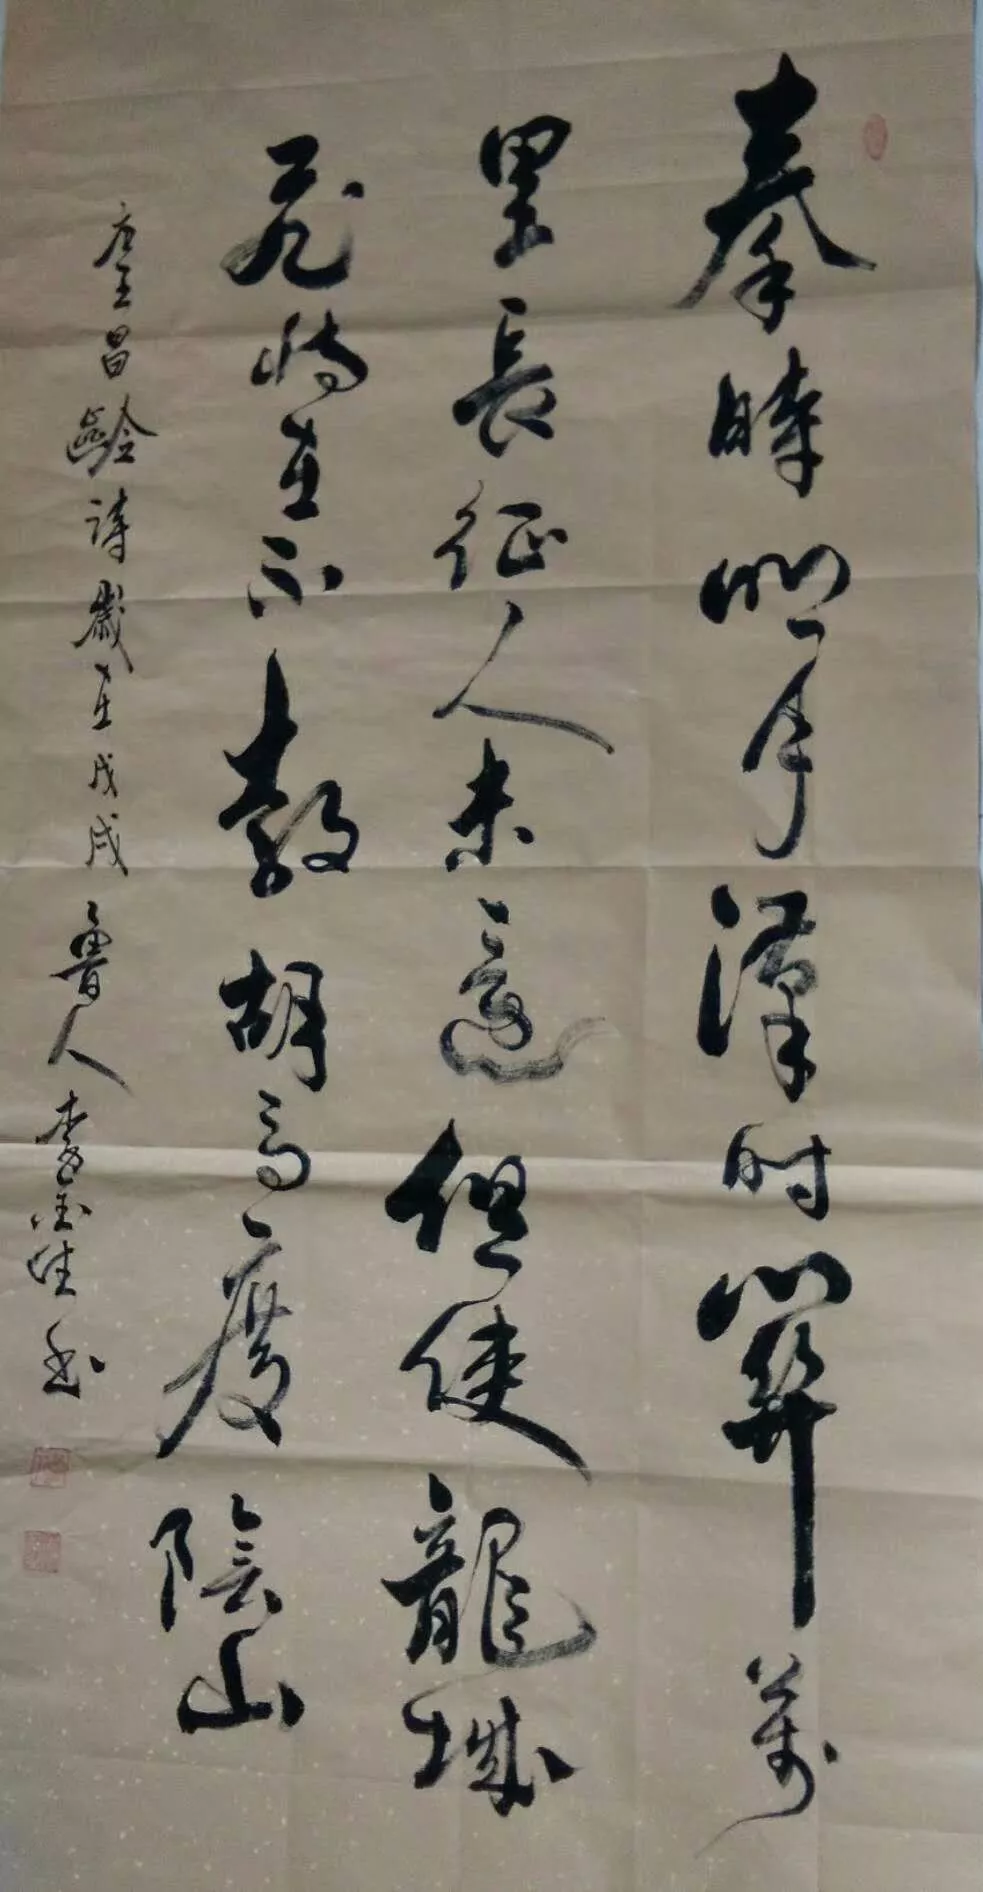 秦時明月漢时關萬
里長征人未還但使龍城
飛將在不教胡馬度陰山
唐王昌齡詩歲在戊戌魯人李书